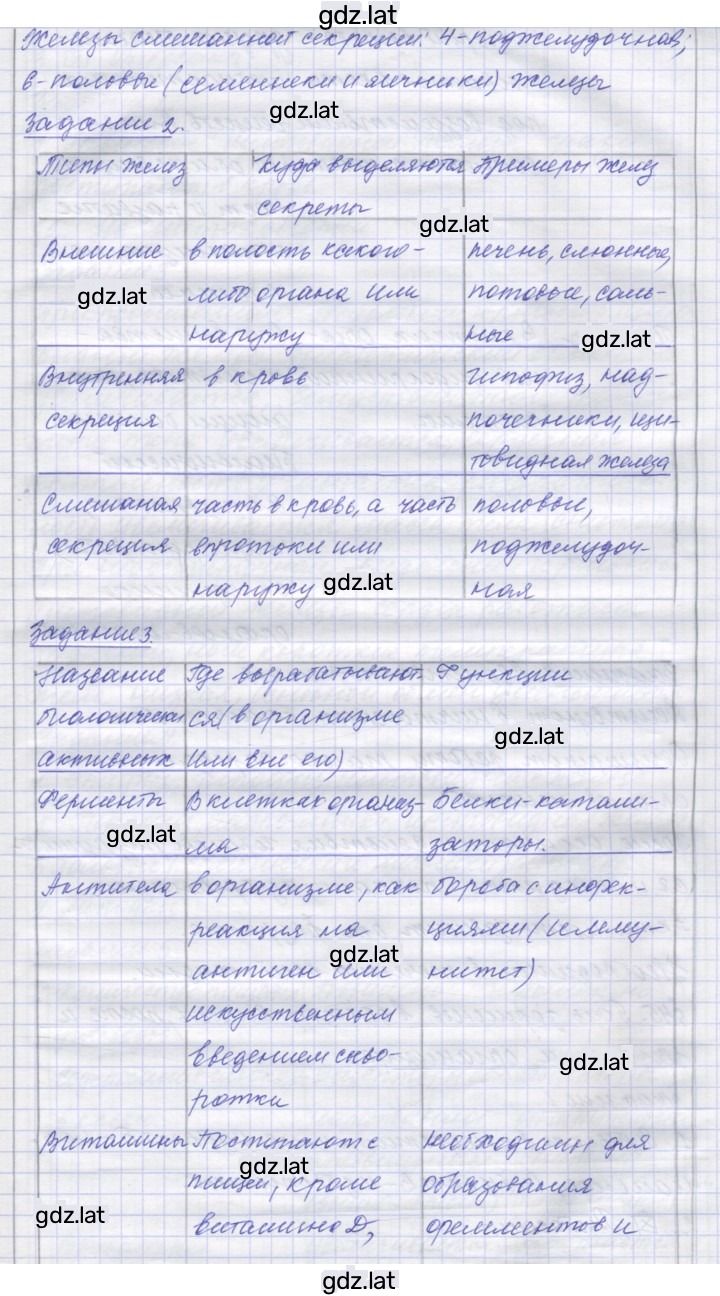 gdz.lat
железы смешанной секреции: 4-поджелудочная;
6-половые (семенники и яичники) железы
gdz.lat
Задание 2.
Типы желез куда выделяются Примеры желез
секреты
gdz.lat
Внешние в полость какого- печень, слюнные,
gdz.lat либо органа или потовые, саль-
наружу ные gdz.lat
Внутренняя в кровь гипофиз, над-
секреция почечники, щи-
товидная железа
Смешаная часть в кровь, а часть половые,
секреция в протоки или поджелудоч-
наружу gdz.lat ная
Задание 3.
Название Где вырабатывают- Функции
биологически ся (в организме
gdz.lat
активных или вне его)
Ферменты В клетках организ- Белки-катали-
gdz.lat ма заторы.
Антитела в организме, как борьба с инфек-
реакция на циями (имму-
gdz.lat
антиген или нитет)
искусственным
введением сыво-
gdz.lat
ротки
Витамины Поступают с необходимы для
gdz.lat
пищей, кроме образования
gdz.lat
витамина D, ферментов и
gdz.lat